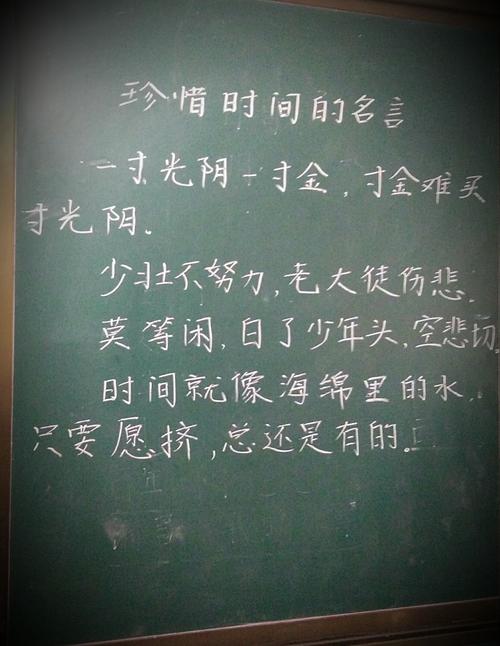 珍惜时间的名言
一寸光阴一寸金，寸金难买
寸光阴.
少壮不努力,老大徒伤悲.
莫等闲,白了少年头,空悲切.
时间就像海绵里的水,
只要愿挤,总还是有的。